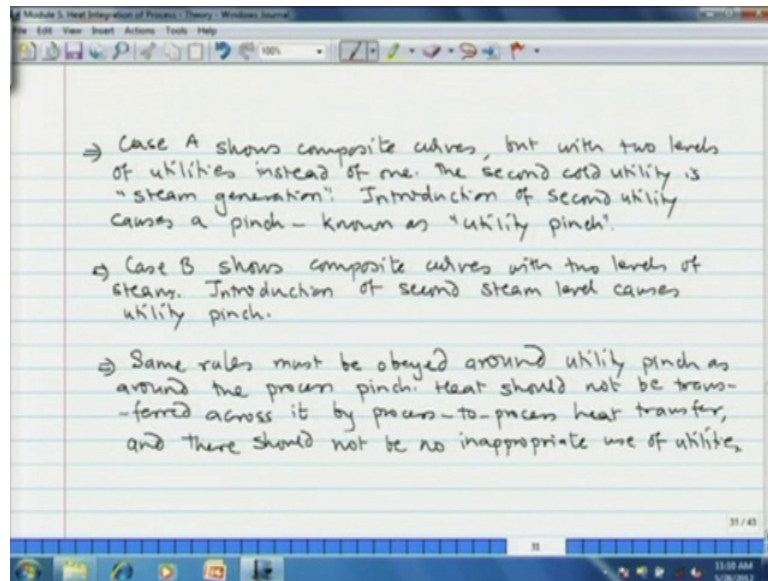 Module 5. Heat Integration of Process - Theory - Windows Journal
File Edit View Insert Actions Tools Help
100%
⇒ Case A shows composite curves, but with two levels
of utilities instead of one. The second cold utility is
"steam generation". Introduction of second utility
causes a pinch - known as "utility pinch".
⇒ Case B shows composite curves with two levels of
steam. Introduction of second steam level causes
utility pinch.
⇒ Same rules must be obeyed around utility pinch as
around the process pinch. Heat should not be trans-
-ferred across it by process-to-process heat transfer,
and there should not be no inappropriate use of utilities
31 / 43
31
11:10 AM
5/28/2012